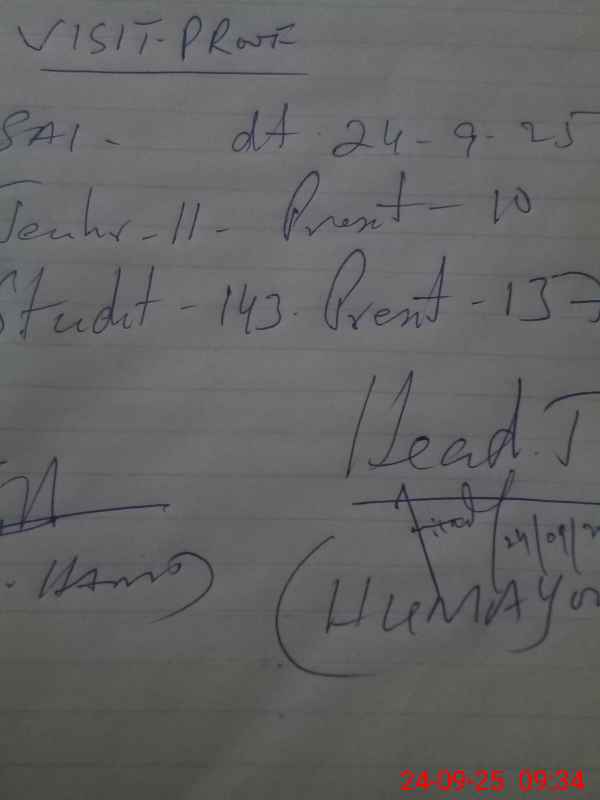 VISIT-PROOF
SAI - dt. 24-9-25
Teachr - 11 - Present - 10
Studnt - 143. Present - 137
Head.T
24/09/2
(HUMAYO
24-09-25 09:34